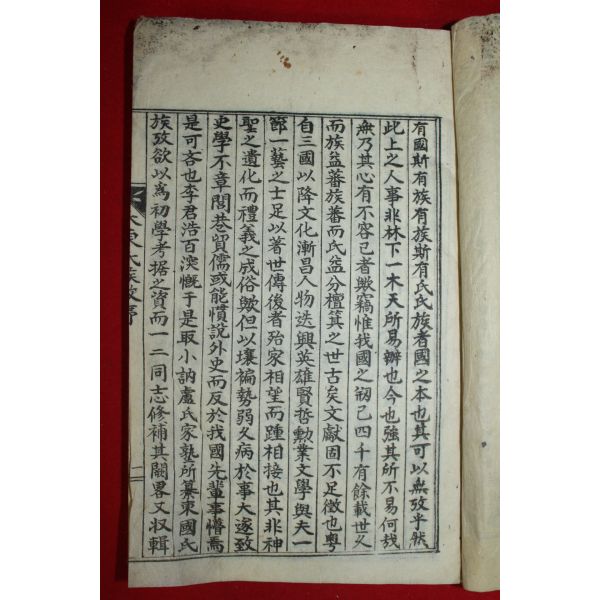 有國斯有族有族斯有氏氏族者國之本也其可以無攷乎然
此上之人事非林下一木天所易辦也今也强其所不易何哉
無乃其心有不容已者歟竊惟我國之刱己四千有餘載世久
而族益蕃族蕃而氏益分檀箕之世古矣文獻固不足徵也粤
自三國以降文化漸昌人物迭興英雄賢哲勳業文學與夫一
節一藝之士足以著世傳後者殆家相望而踵相接也其非神
聖之遺化而禮義之成俗歟但以壤褊勢弱久病於事大遂致
史學不章閭巷貿儒或能慣說外史而反於我國先輩事懵焉
是可吝也李君浩百深慨于是取小訥盧氏家塾所纂東國氏
族攷欲以爲初學考据之資而一二同志修補其闕畧又収輯
大東氏族攷序
二